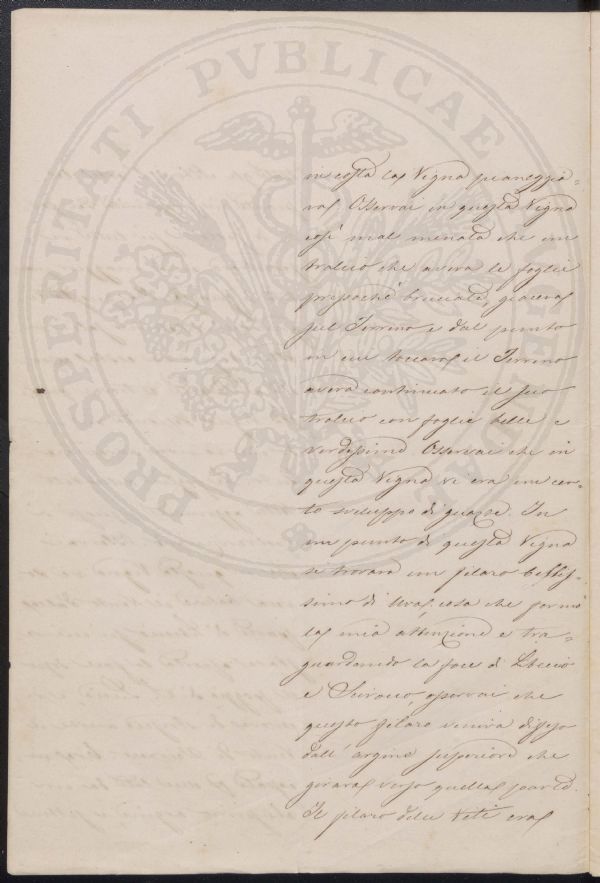 PROSPERITATI PUBLICAE AUGENDAE
in costa la Vigna pianeggia=
va. Osservai in questa Vigna
così mal menata che un
tralcio che aveva le foglie
pressoché bruciate, giaceva
sul Terreno e dal punto
in cui toccava il Terreno
aveva continuato il suo
tralcio con foglie belle e
verdissime. Osservai che in
questa Vigna vi era un cer=
to sviluppo di guazze. In
un punto di questa Vigna
si trovava un filaro bellis=
simo di Uva, cosa che fermò
la mia attenzione e tra=
guardando la foce di Libeccio
e Scirocco, osservai che
questo filaro veniva difeso
dall' argine superiore che
girava verso quella parte.
Il filaro delle Viti era